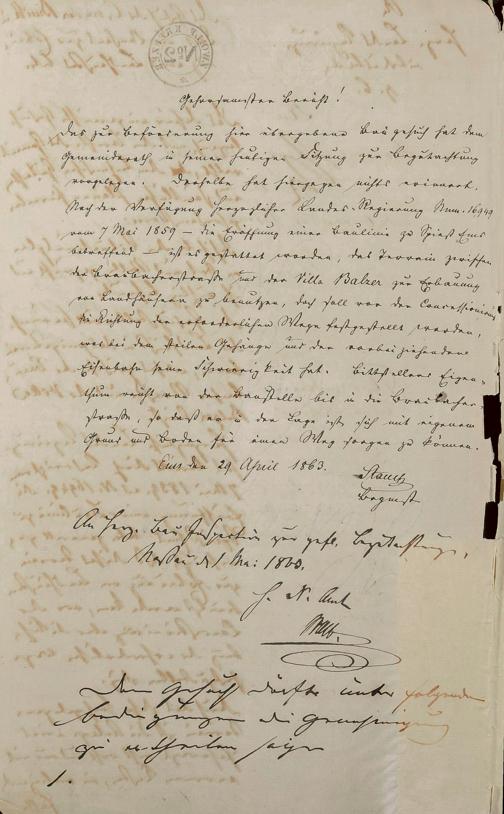 Gehorsamster Bericht!
Das zur Beförderung hier übergebene Baugesuch hat dem
Gemeinderath in seiner heutigen Sitzung zur Begutachtung
vorgelegen. Derselbe hat hiergegen nichts erinnert.
Nach der Verfügung Herzoglicher Landes-Regierung Num.
vom 7 Mai 1859 – die Eröffnung einer Baulinie zu Ems
betreffend – ist es gestattet worden, das Terrain zwischen
der Braubacherstraße und der Villa Balzer zur Erbauung
von Landhäusern zu benutzen, doch soll vor der Concessionirung
die Richtung der erforderlichen Wege festgestellt werden,
was bei dem steilen Gehänge und der vorbeiziehenden
Eisenbahn seine Schwierigkeit hat. Bittstellers Eigen-
thum reicht von der Baustelle bis in die Braubacher-
straße, so daß er in der Lage ist, sich mit eigenem
Grund und Boden für einen Weg sorgen zu können.
Ems den 29 April 1863.
An Herz. Bau Inspection zur gefl. Begutachtung.
Nassau d 1 Mai 1863.
H. N. Amt
Dem Gesuch dürfte unter folgenden
bedingungen die Genehmigung
zu ertheilen sein
1.